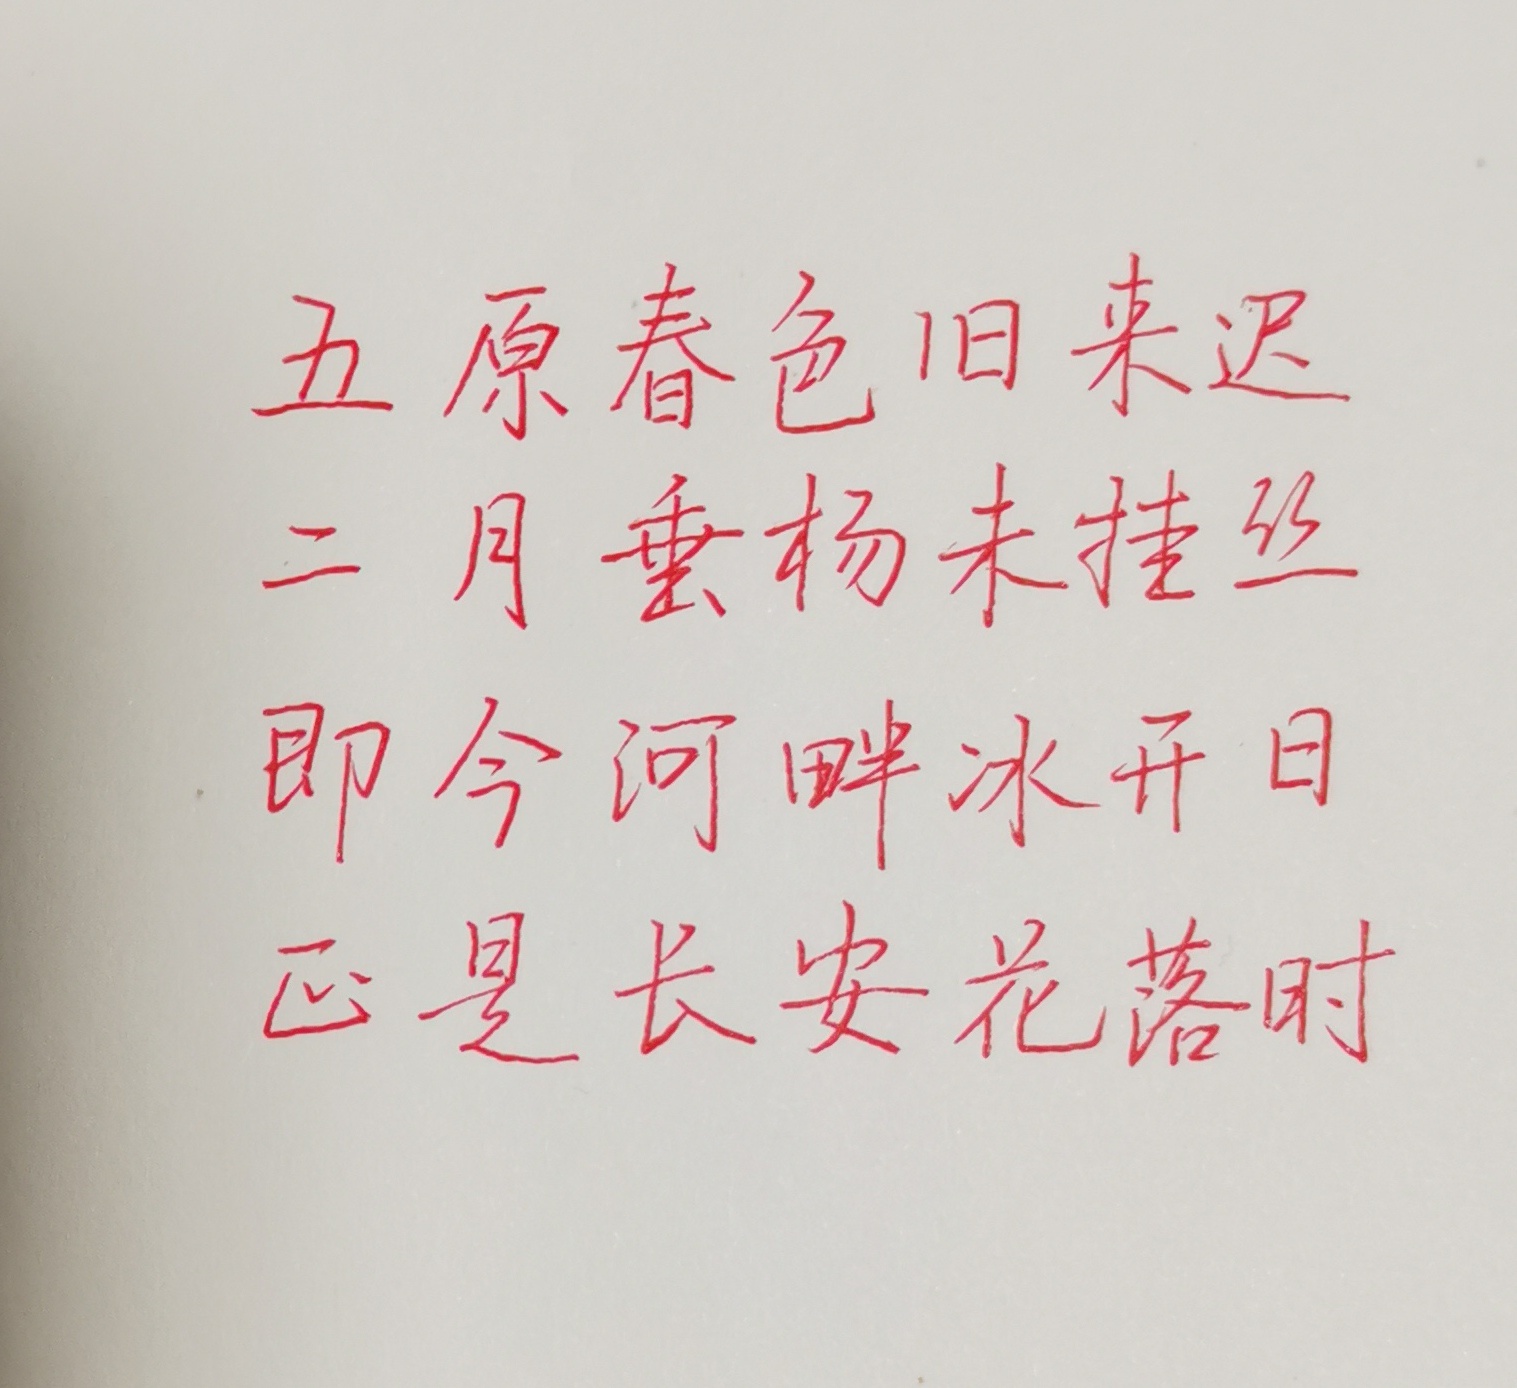 五原春色旧来迟
二月垂杨未挂丝
即今河畔冰开日
正是长安花落时